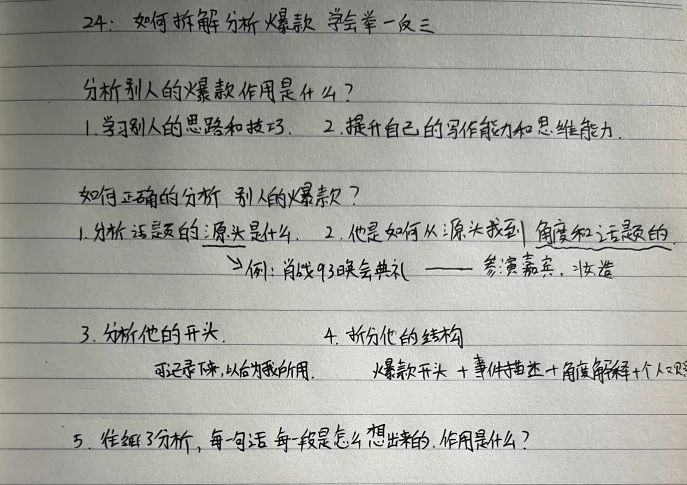 24: 如何拆解分析爆款 学会举一反三
分析别人的爆款作用是什么?
1.学习别人的思路和技巧. 2.提升自己的写作能力和思维能力.
如何正确的分析 别人的爆款?
1.分析话题的源头是什么. 2.他是如何从源头找到角度和话题的.
例: 肖战93晚会典礼 —— 参演嘉宾, 妆造
3. 分析他的开头. 4. 拆分他的结构
可记录下来,以后为我所用. 爆款开头 + 事件描述 + 角度解释 + 个人
5. 往细了分析, 每一句话 每一段是怎么想出来的. 作用是什么?